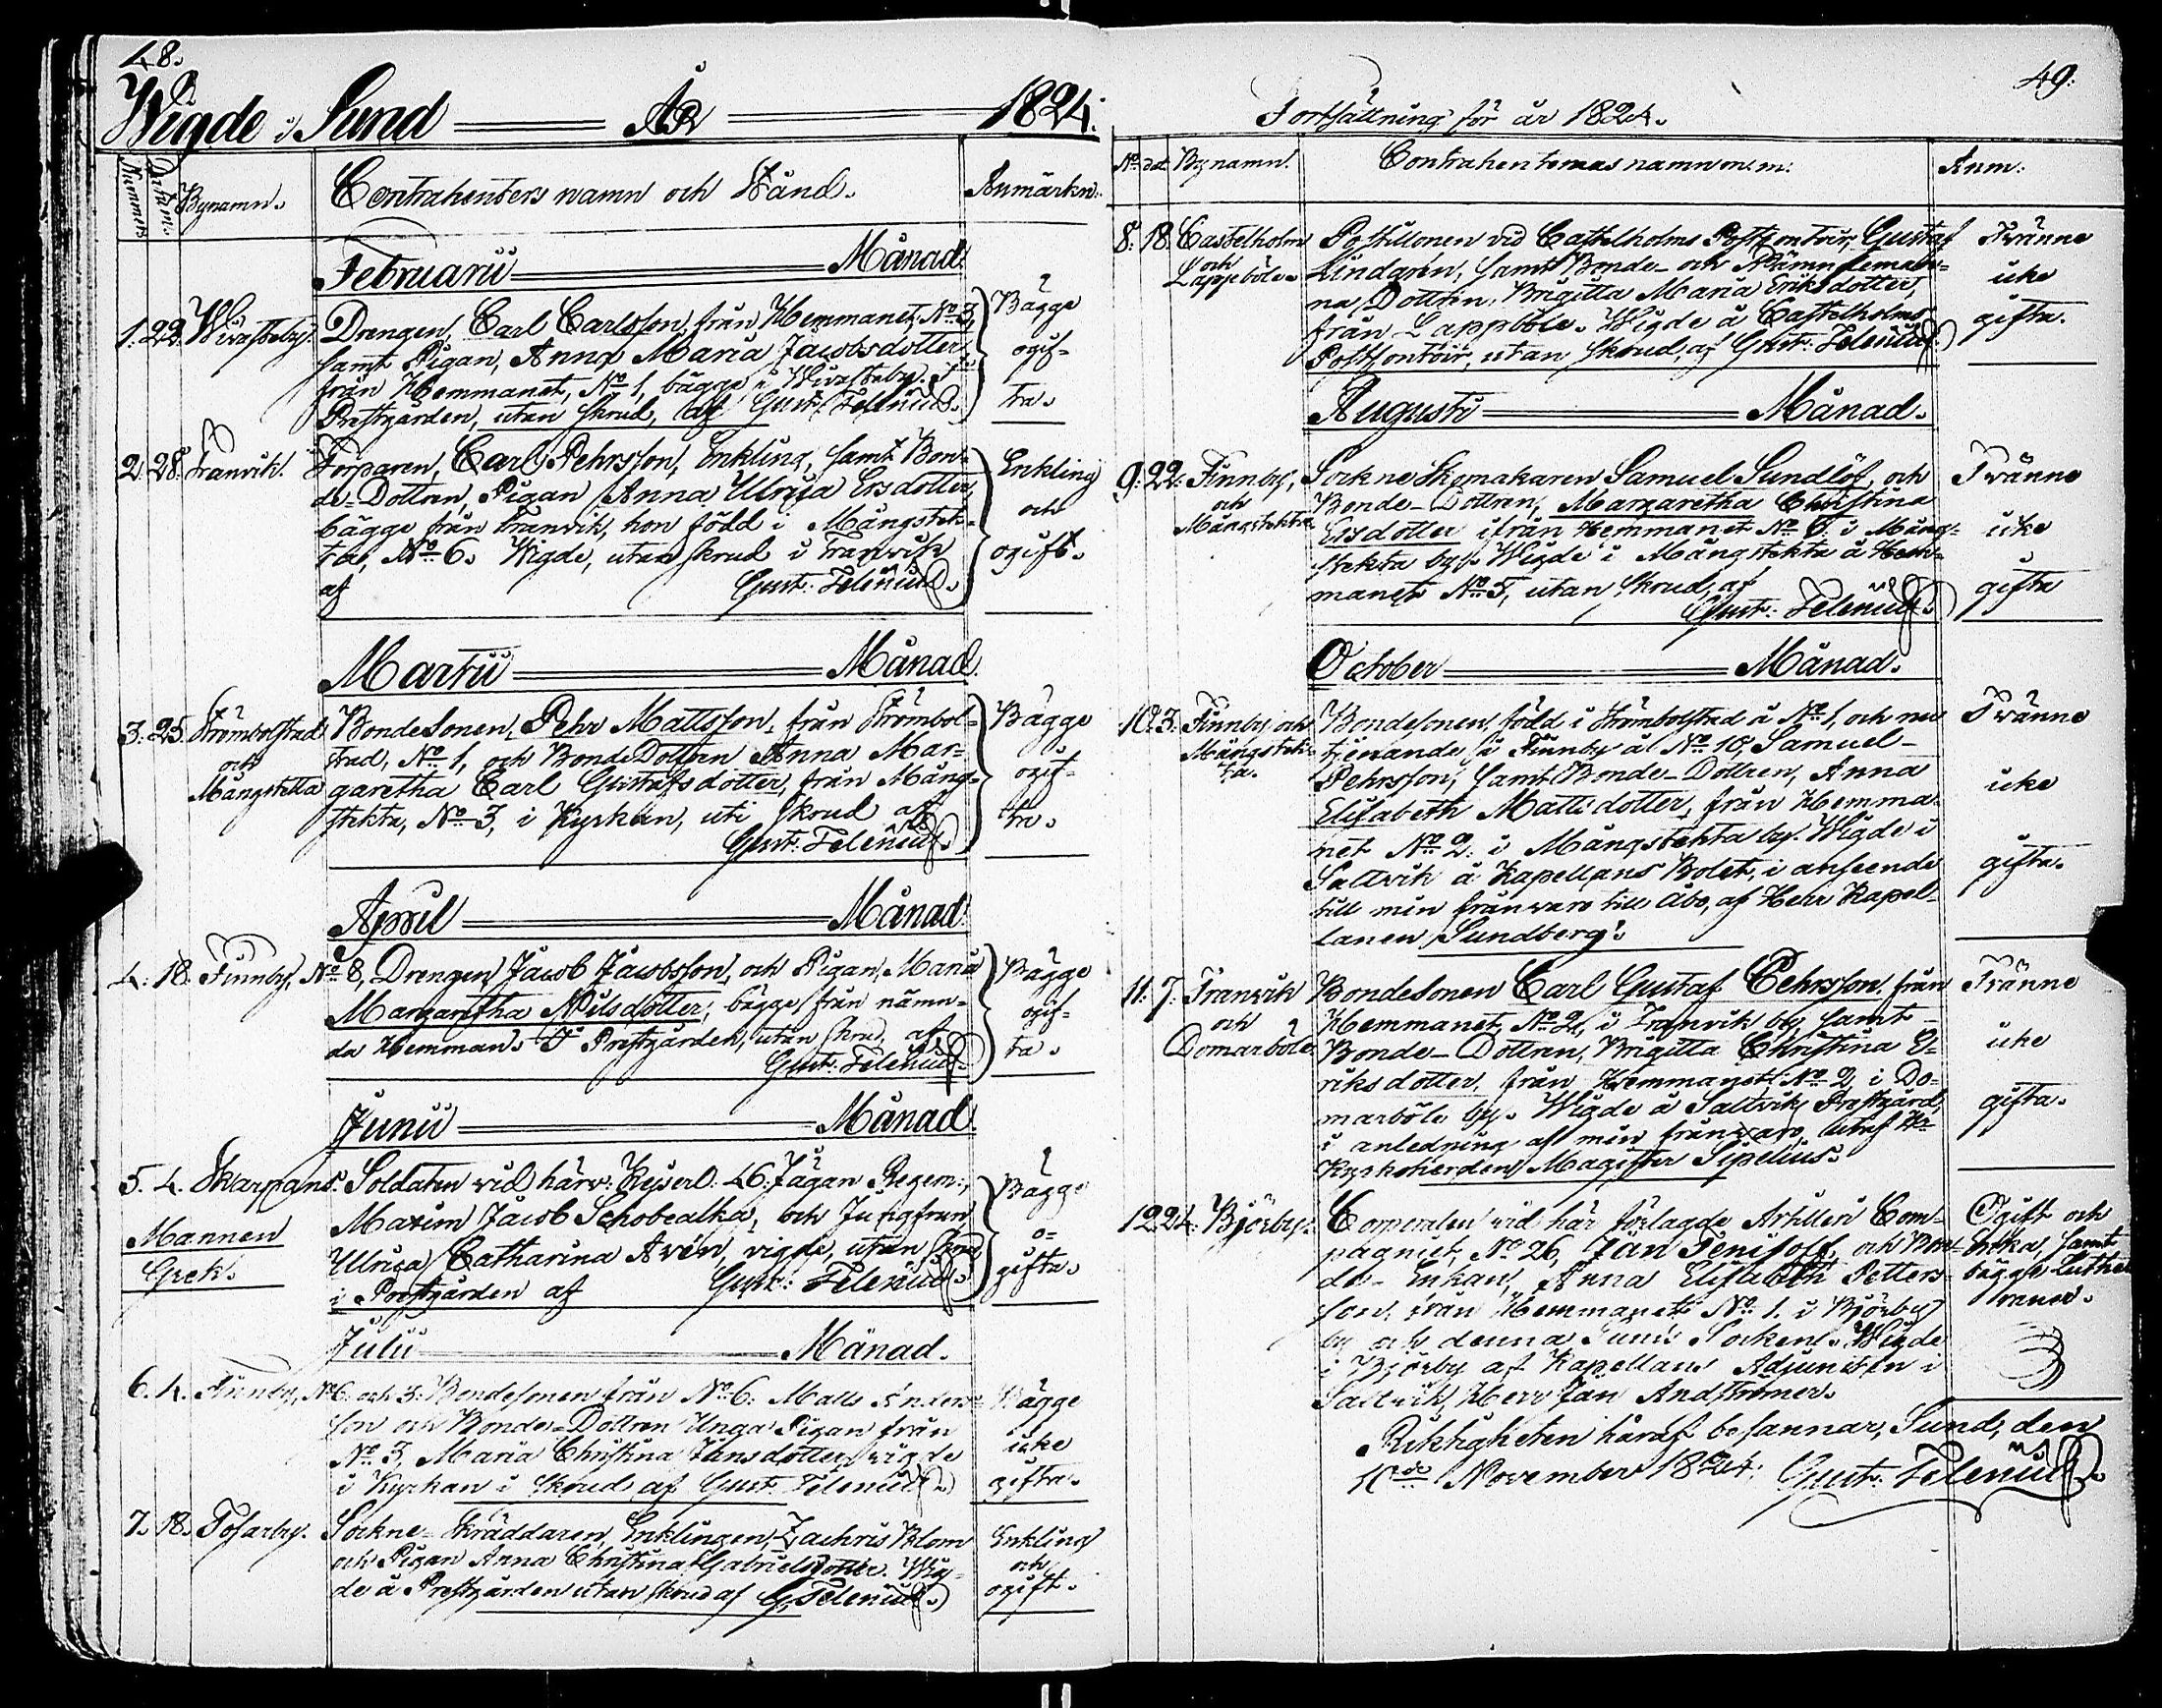 48.
Wigde i Sund År 1824.
Nummer Datum Bynamn. Contrahenters namn och Stånd. Anmärkn:
Februarii Månad.
1. 22. Wivasteby. Drengen, Carl Carlsson, från Hemmanet No 3, Bägge
samt Pigan, Anna Maria Jacobsdotter, ogif-
från Hemmanet, No 1, bägge i Wivasteby. I
Prestgården, utan skrud, af Gust: Felenius. ta.
2. 28. Tranvik. Torparen, Carl Pehrsson, Enkling, samt Bon- Enkling
de-Dottren, Pigan Anna Ulrica Ersdotter, och
bägge från Tranvik, hon född i Mångstek-
ta, No 6. Wigde, utan skrud i Tranvik ogift.
af Gust: Felenius.
Martii Månad.
3. 25. Strömbolstad BondeSonen, Pehr Mattsson, från Strömbol- Bägge
och stad, No 1, och BondeDottren Anna Mar- ogif-
Mångstekta garetha Carl Gustafsdotter, från Mång-
stekta, No 3, i Kyrkan, uti skrud af ta.
Gust: Felenius.
April Månad.
4. 18. Finnby, No 8, Drengen Jacob Jacobsson, och Pigan, Maria Bägge
Margaretha Nilsdotter, bägge från nämn- ogif-
da Hemman. I Prestgården, utan skrud, af ta.
Gust: Felenius.
Junii Månad.
5. 4. Skarpans. Soldaten vid härv: Kejserl: 46: Jägar Regem:, Bägge
Mannen Maxim Jacob Schobealka, och Jungfrun, o-
Grek. Ulrica Catharina Avén, vigde, utan skrud gifta.
i Prestgården af Gust: Felenius.
Julii Månad.
6. 4. Finnby, No 6. och 3. Bondesonen från No 6. Matts Anders- Bägge
son och Bonde-Dottren Unga Pigan från icke
No 3, Maria Christina Jansdotter, wigde
i Kyrkan i skrud af Gust: Felenius gifta.
7. 18. Tosarby. Sockne-Skräddaren, Enklingen, Zachris Blom Enkling
och Pigan Anna Christina Gabrielsdotter. Wig- och
de å Prestgården utan skrud af G. Felenius. ogift.
49.
Fortsättning för år 1824.
No dat. Bynamn. Contrahenternas namn m. m: Anm:
8. 18. Castelholm Postillonen vid Castelholms Postcontoir, Gustaf Tvänne
och Lindgrén, samt Bonde- och Nämndeman-
Lappböle. na, Dottren, Brigitta Maria Eriksdotter, icke
från Lappböle. Wigde å Castelholms gifta.
Postcontoir, utan skrud, af Gust: Felenius.
Augusti Månad.
9. 22. Finnby, Sockne Skomakaren Samuel Sundlöf, och Tvänne
och Bonde-Dottren, Margaretha Christina
Mångstekta Ersdotter ifrån Hemmanet No 5 i Mång- icke
stekta by. Wigde i Mångstekta å Hem-
manet No 5, utan skrud, af gifta
Gust: Felenius.
October Månad.
10. 3. Finnby och Bondesonen, född i Strömbolstad å No 1, och nu Tvänne
Mångstek- tjenande i Finnby å No 10, Samuel
ta. Pehrsson, samt Bonde-Dottren, Anna
Elisabeth Mattsdotter, från Hemma- icke
net No 2. i Mångstekta by. Wigde i
Saltvik å Kapellans Bolet, i anseende gifta.
till min frånvaro till Åbo, af Herr Kapel-
lanen Sundberg.
11. 7. Tranvik BondeSonen Carl Gustaf Pehrsson från Tvänne
och Hemmanet, No 2, i Tranvik by, samt
Domarböle Bonde-Dottren, Brigitta Christina E- icke
riksdotter, från Hemmanet No 2, i Do-
marböle by. Wigde å Saltvik Prestgård, gifta.
i anledning af min frånvaro, utaf Hr
Kyrkoherden Magister Sipelius.
12. 24. Björby. Corporalen vid här förlagde Artilleri Com- Ogift och
pagniet, No 26, Jan Fenisoff, och Bon- Enka, samt
de-Enkan, Anna Elisabeth Petters- bägge Luthe-
son, från Hemmanet No 1. i Björby raner.
by och denna Sunds Socken. Wigde
i Björby af Kapellans Adjuncten i
Saltvik, Herr Jan Andströmer.
Riktigheten häraf besannar, Sund, den
1sde November 1824: Gust: Felenius